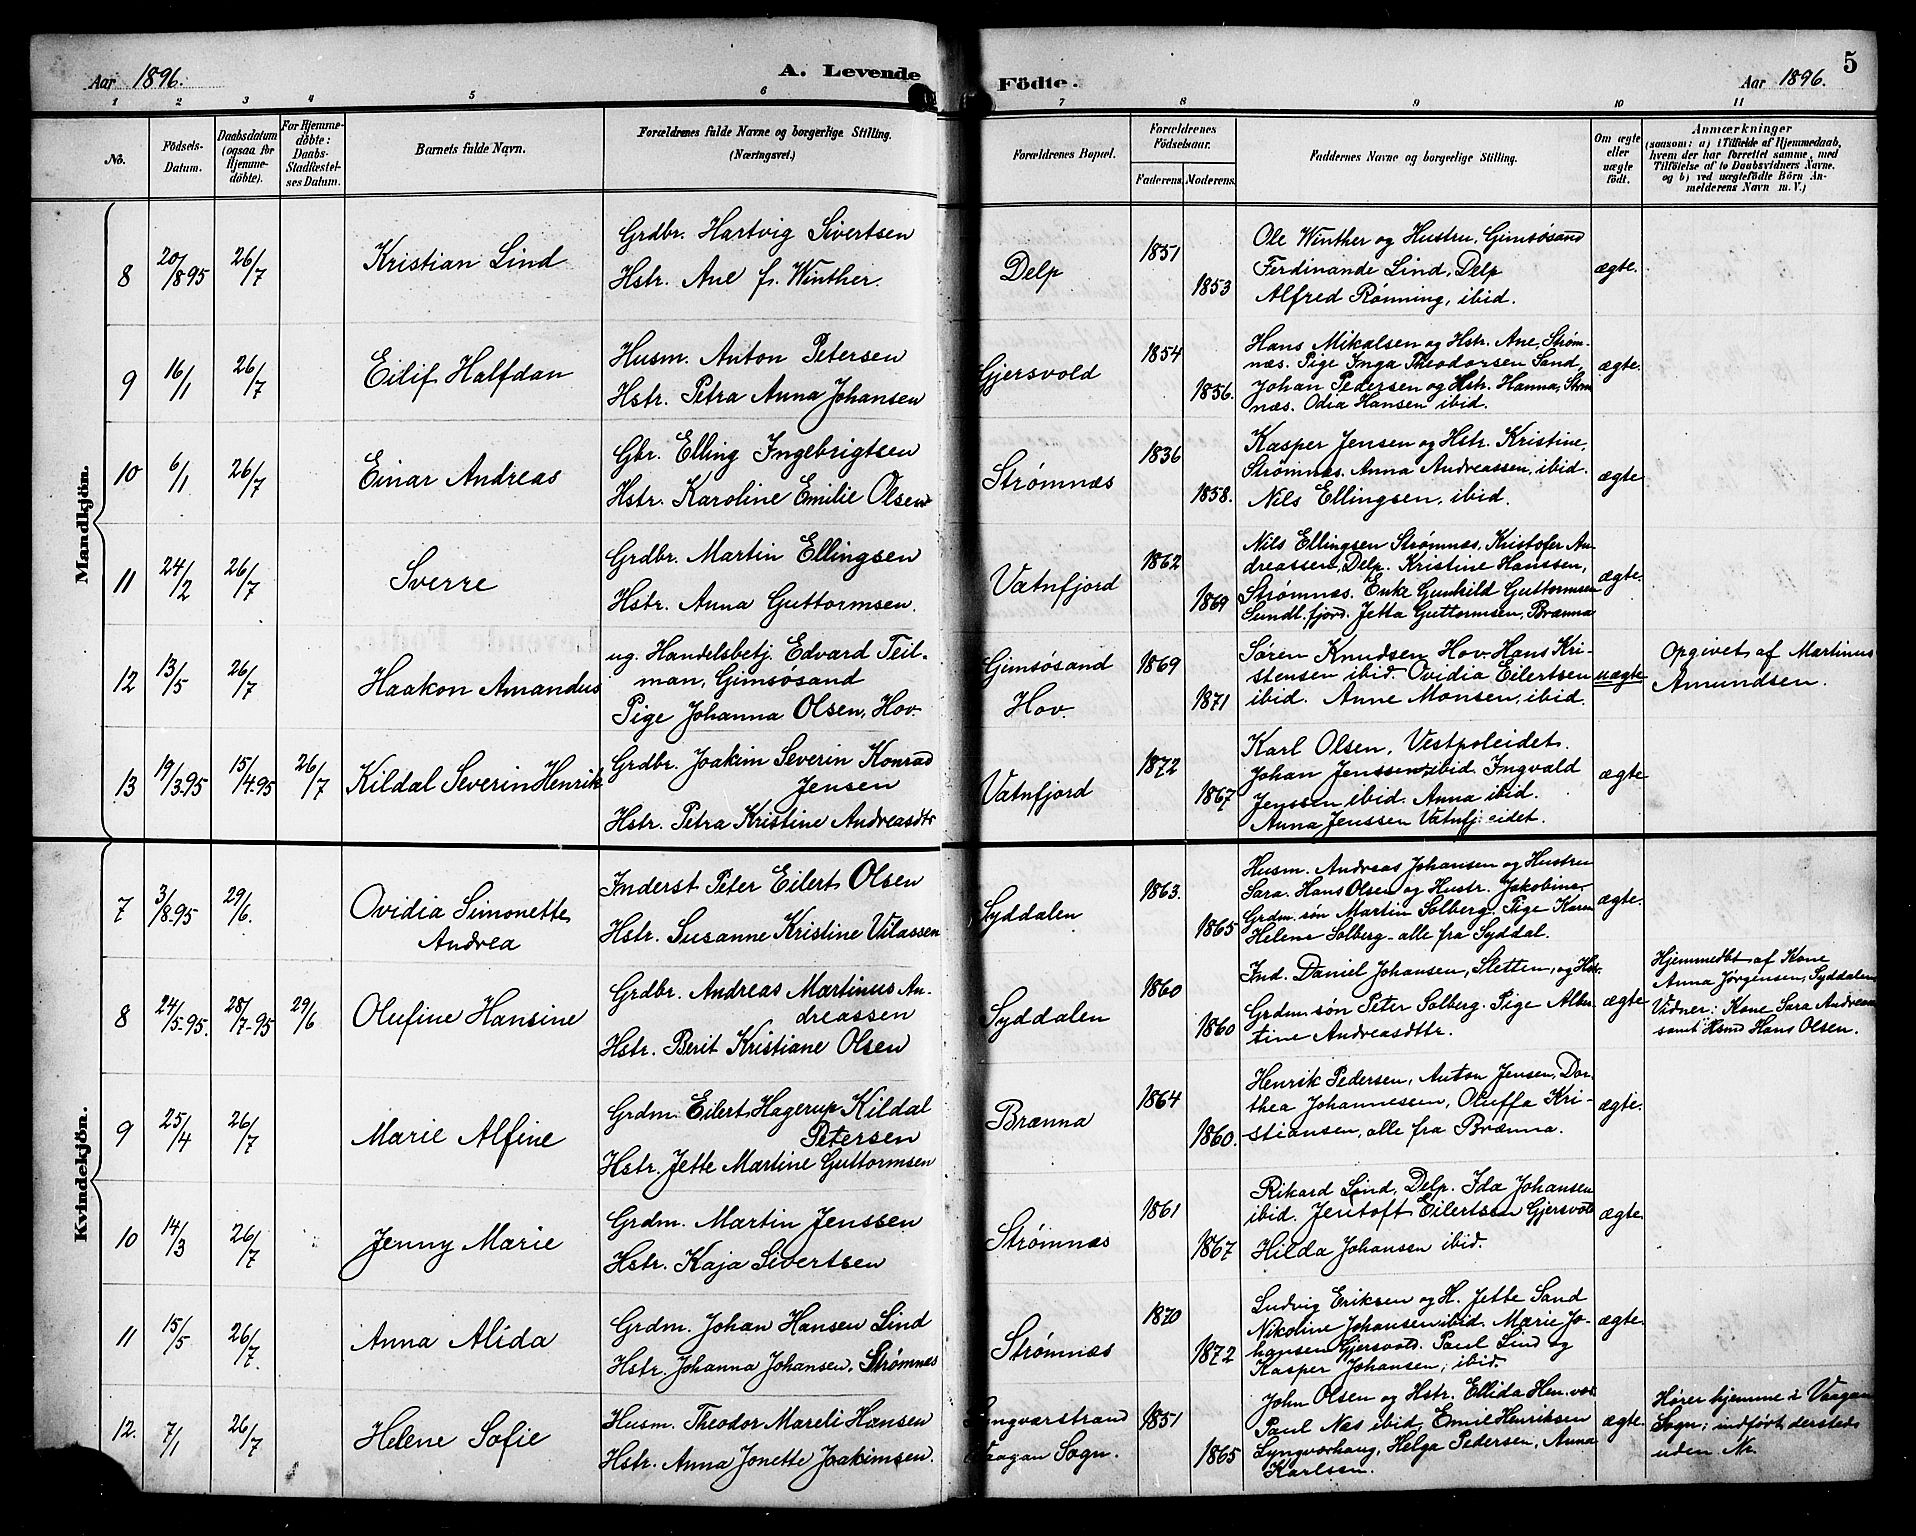 Aar 1896.
A. Levende Födte.
Aar 1896.
5
1 2 3 4 5 6 7 8 9 10 11
No.
Födsels-
Datum.
Daabsdatum
(ogsaa for
Hjemme-
döbte).
For Hjemme-
döbte:
Daabs-
Stadfæstel-
ses Datum.
Barnets fulde Navn.
Forældrenes fulde Navne og borgerlige Stilling.
(Næringsvei.)
Forældrenes Bopæl.
Forældrenes
Födselsaar.
Faderens. Moderens.
Faddernes Navne og borgerlige Stilling.
Om ægte
eller
uægte
födt.
Anmærkninger
(saasom: a) i Tilfælde af Hjemmedaab,
hvem der har forrettet samme, med
Tilföielse af to Daabsvidners Navne.
og b) ved uægtefödte Börn An-
melderens Navn m. V.)
Mandkjön.
8
20/8 95
26/7
Kristian Lind
Grdbr. Hartvig Sivertsen
Hstr. Ane f. Winther.
Delp
1851
1853
Ole Winther og Hustru, Gimsøsand
Ferdinande Lind, Delp
Alfred Rønning, ibid.
ægte.
9
16/1
26/7
Eilif Halfdan
Husm. Anton Petersen
Hstr. Petra Anna Johansen
Gjersvold
1854
1856.
Hans Mikalsen og Hstr. Ane, Strøm-
næs. Pige Inga Theodorsen Sand,
Johan Pedersen og Hstr. Hanna, Strøm
næs. Odia Hansen ibid.
ægte.
10
6/1
26/7
Einar Andreas
Gbr. Elling Ingebrigtsen
Hstr. Karoline Emilie Olsen
Strømnæs
1836
1858.
Kasper Jensen og Hstr. Kristine,
Strømnæs. Anna Andreassen, ibid.
Nils Ellingsen, ibid.
ægte
11
24/2
26/7
Sverre
Grdbr. Martin Ellingsen
Hstr. Anna Guttormsen.
Vatnfjord
1862
1869
Nils Ellingsen Strømnæs, Kristofer An-
dreassen, Delp. Kristine Hanssen,
Strømnæs. Enke Gunhild Guttormsen
Sundl.fjord. Jetta Guttormsen, Brænna
ægte.
12
13/5
26/7
Haakon Amandus
ug. Handelsbetj. Edvard Teil-
man, Gimsøsand
Pige Johanna Olsen, Hov.
Gimsøsand
Hov.
1869
1871
Søren Knudsen Hov. Hans Kri-
stensen ibid. Ovidia Eilertsen
ibid. Anne Monsen, ibid.
uægte
Opgivet af Martinus
Amundsen.
13
19/3-95
15/4-95
26/7
Kildal Severin Henrik
Grdbr. Joakim Severin Konrad
Jensen
Hstr. Petra Kristine Andreasdtr
Vatnfjord
1872
1867
Karl Olsen, Vestpoleidet.
Johan Jenssen ibid. Ingvald
Jenssen ibid. Anna ibid.
Anna Jenssen Vatnfj. eidet.
ægte
Kvindekjön.
7
3/8-95
29/6.
Ovidia Simonette
Andrea
Inderst Peter Eilert Olsen
Hstr. Susanne Kristine Vilassen
Syddalen
1863.
1865
Husm. Andreas Johansen og Hustru
Sara. Hans Olsen og Hustr. Jakobine,
Grdm. søn Martin Solberg. Pige Karen
Helene Solberg - alle fra Syddal.
ægte.
8
24/5-95.
28/7-95
29/6
Olufine Hansine
Grdbr. Andreas Martinus An-
dreassen
Hstr. Berit Kristiane Olsen
Syddalen
1860
1860
Ind. Daniel Johansen, Sletten, og Hstr.
Grdm. søn Peter Solberg. Pige Alber-
tine Andreasdttr.
ægte
Hjemmedbt af Kone
Anna Jørgensen, Syddalen
Vidner: Kone Sara Andreassen
samt Hsmd Hans Olsen.
9
25/4
26/7
Marie Alfine
Grdm. Eilert Hagerup Kildal
Petersen
Hstr. Jette Martine Guttormsen
Brænna
1864
1860.
Henrik Pedersen, Anton Jensen, Dor-
thea Johannessen, Oluffa Kri-
stiansen, alle fra Brænna.
ægte.
10
14/3
26/7
Jenny Marie
Grdm. Martin Jenssen
Hstr. Kaja Sivertsen
Strømnæs
1861
1867
Rikard Lind, Delp. Ida Johansen
ibid. Jentoft Eilertsen Gjersvold
Hilda Johansen ibid.
ægte.
11
15/5
26/7.
Anna Alida
Grdm. Johan Hansen Lind
Hstr. Johanna Johansen. Strømnæs
Strømnæs
1870
1872
Ludvig Eriksen og H. Jette Sand
Nikoline Johansen ibid. Marie Jo-
hansen Gjersvold. Paul Lind og
Kasper Johansen, ibid.
ægte.
12.
7/1
26/7
Helene Sofie
Husm. Theodor Mareli Hansen
Hstr. Anna Jonette Joakimsen.
Lyngværstrand
Vaagan Sogn.
1851
1865
John Olsen og Hstr. Ellida Hen.vær
Paul Næs ibid, Emil Henriksen
Lyngværhaug, Helga Pedersen, Anna
Karlsen.
ægte.
Hører hjemme i Vaagan
Sogn; indført dersteds
uden Nr.